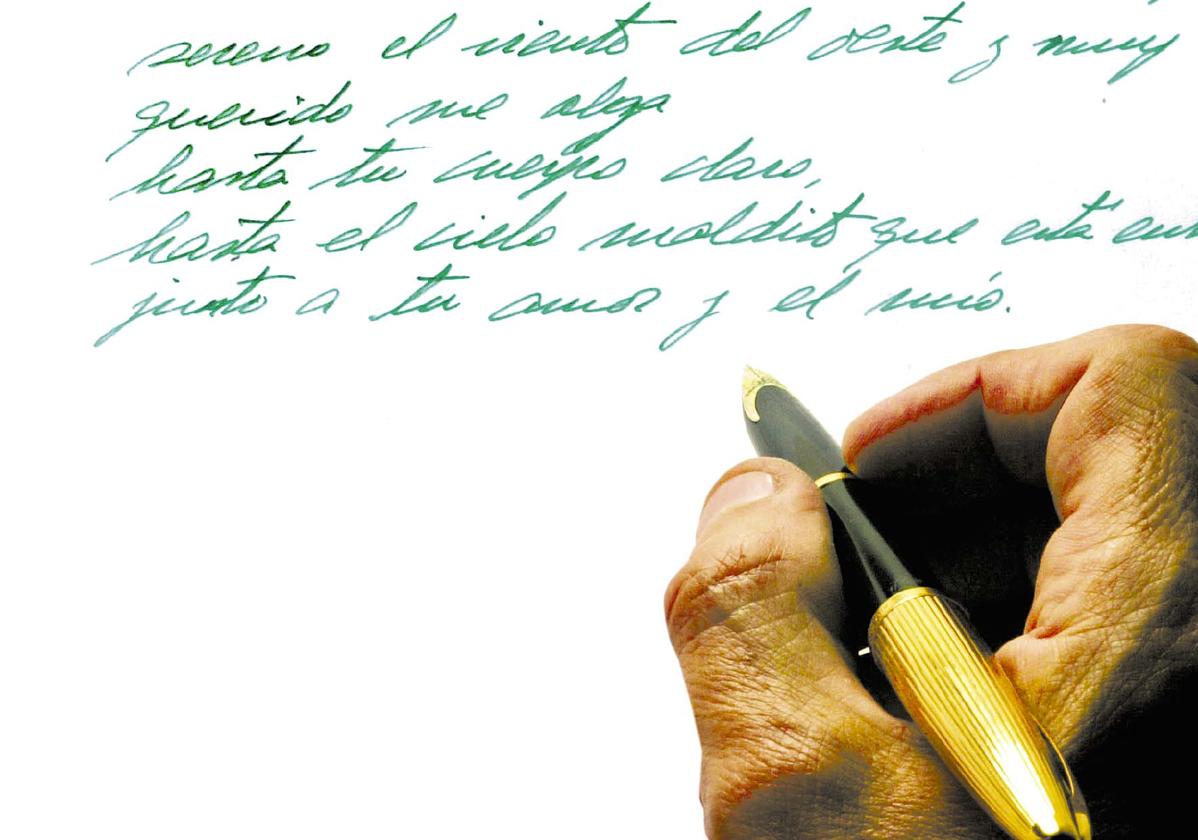 sereno el viento del oeste y muy
querido me alza
hasta tu cuerpo claro,
hasta el cielo maldito que está
junto a tu amor y el mío.